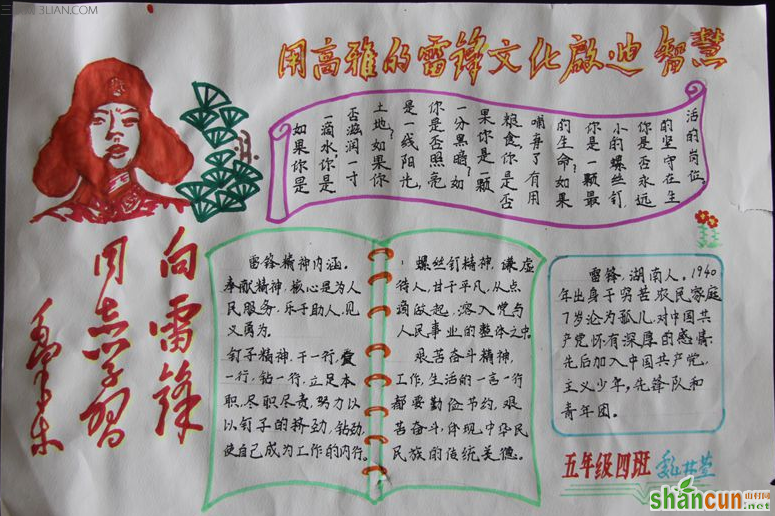 三联网 3LIAN.COM
用高雅的雷锋文化啟迪智慧
如果你是
一滴水,你是
否滋润一寸
土地?如果你
是一线阳光,
你是否照亮
一分黑暗?如
果你是一颗
粮食,你是否
哺育了有用
的生命?如果
你是一颗最
小的螺丝钉,
你是否永远
的坚守在生
活的岗位。
向雷锋
同志学习
毛泽东
雷锋精神内涵。
奉献精神,核心是为人
民服务,乐于助人,见
义勇为。
钉子精神,干一行,爱
一行,钻一行,立足本
职,尽职尽责,努力以
以钉子的挤劲,钻劲,
使自己成为工作的内行。
螺丝钉精神,谦虚
待人,甘于平凡,从点
滴做起,溶入党与
人民事业的整体之中。
艰苦奋斗精神,
工作,生活的一言一行
都要勤俭节约,艰
苦奋斗,体现中华民
民族的传统美德。
雷锋,湖南人。1940
年出身于穷苦农民家庭
7岁沦为孤儿,对中国共
产党怀有深厚的感情.
先后加入中国共产党,
主义少年,先锋队和
青年团。
五年级四班
shancun
山村网
.net